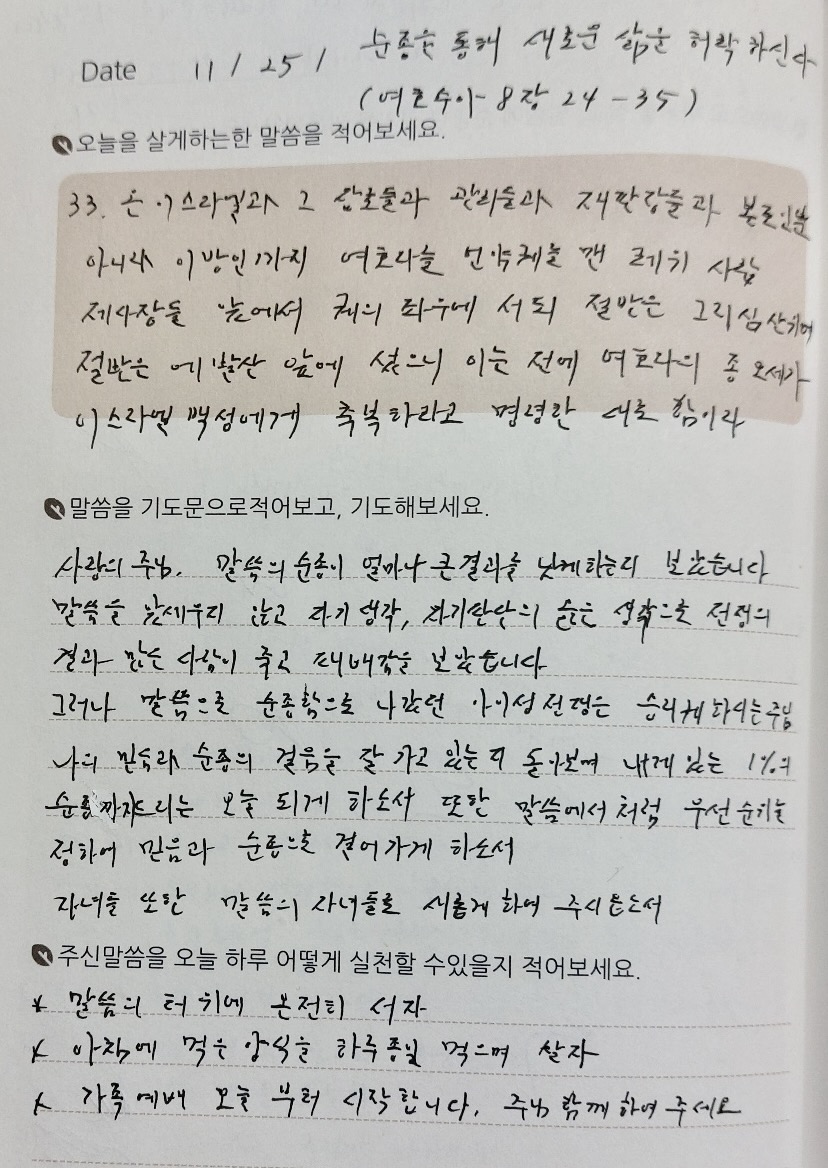 순종을 통해 새로운 삶을 허락하신다
Date 11 / 25 /
(여호수아 8장 24 - 35)
오늘을 살게하는한 말씀을 적어보세요.
33. 온 이스라엘과 그 장로들과 관리들과 재판장들과 본토인뿐
아니라 이방인까지 여호와의 언약궤를 멘 레위 사람
제사장들 앞에서 궤의 좌우에 서되 절반은 그리심 산 앞에
절반은 에발산 앞에 섰으니 이는 전에 여호와의 종 모세가
이스라엘 백성에게 축복하라고 명령한 대로 함이라
말씀을 기도문으로적어보고, 기도해보세요.
사랑의 주님. 말씀의 순종이 얼마나 큰 결과를 낫게하는지 보았습니다
말씀을 앞세우지 않고 자기 생각, 자기판단의 생각으로 전쟁의
결과 많은 사람이 죽고 패배감을 보았습니다
그러나 말씀으로 순종함으로 나갔던 아이성 전쟁은 승리케 하시는 주님
나의 믿음과 순종의 걸음을 잘 가고 있는지 돌아보며 내게 있는 1%의
순종까지 드리는 오늘 되게 하소서 또한 말씀에서처럼 우선순위를
정하여 믿음과 순종으로 걸어가게 하소서
자녀들 또한 말씀의 자녀들로 새롭게 하여 주시옵소서
주신말씀을 오늘 하루 어떻게 실천할 수있을지 적어보세요.
* 말씀의 터 위에 온전히 서자
* 아침에 먹은 양식을 하루종일 먹으며 살자
* 가족예배 오늘 부터 시작합니다. 주님 함께 하여 주세요